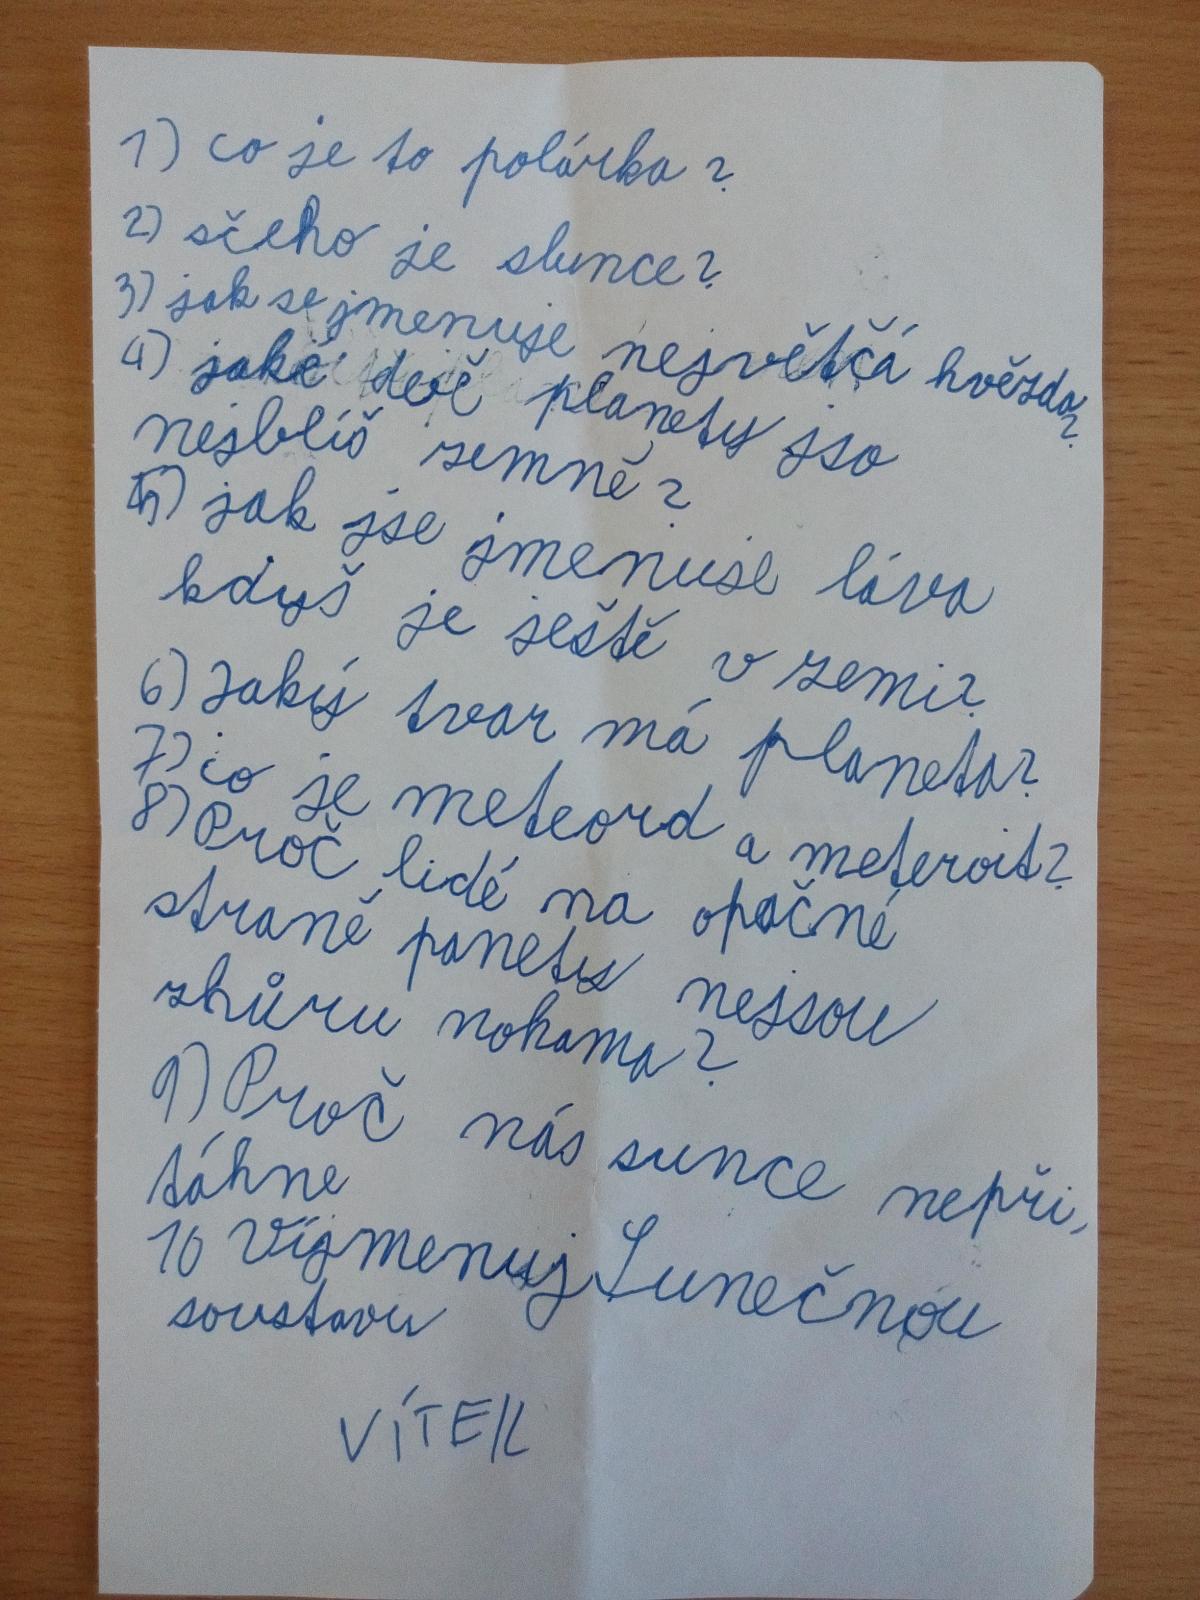 1) co je to polárka?
2) sčeho je slunce?
3) jak se jmenuje největčá hvězda?
4) jaké dvě planety jso
nejblíš zemně?
5) jak jse jmenuje láva
kdyš je ještě v zemi?
6) Jaký tvar má planeta?
7) co je meteord a meteroit?
8) Proč lidé na opačné
straně panety nejsou
zhůru nohama?
9) Proč nás sunce nepři,
táhne
10 Víjmenuj Sunečnou
soustavu
VÍTEK